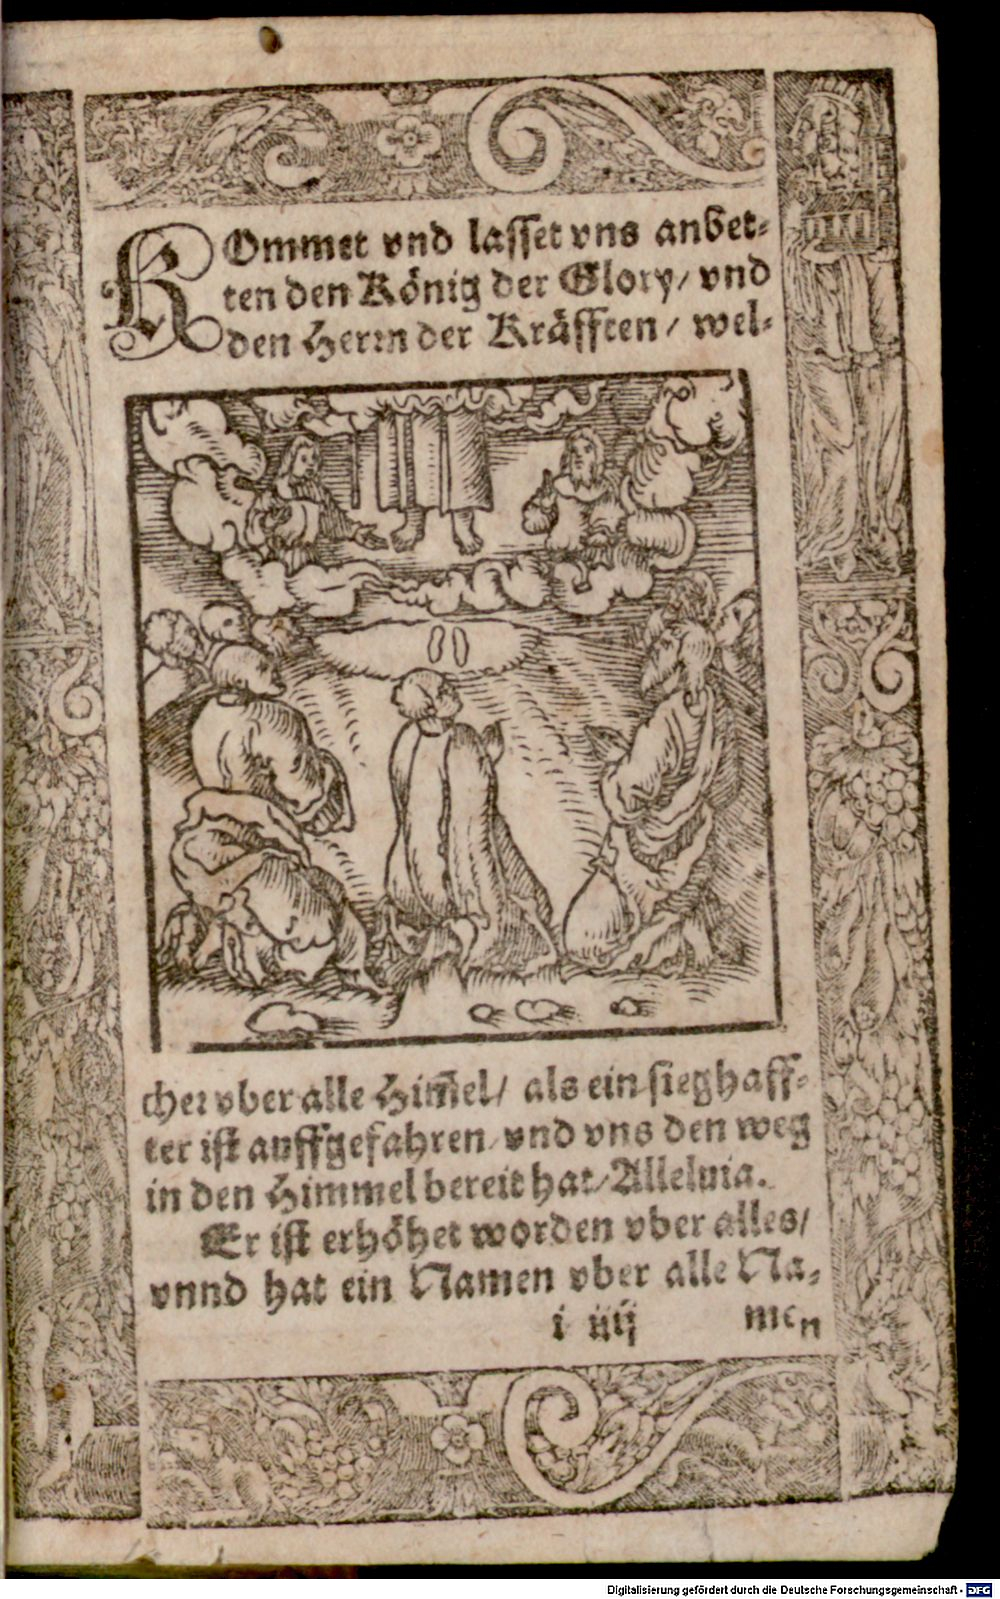 KOmmet vnd lasset vns anbet-
ten den König der Glory/ vnd
den Herrn der Kräfften/ wel-
cher vber alle Him̄el/ als ein sieghaff-
ter ist auffgefahren/ vnd vns den weg
in den Himmel bereit hat/ Alleluia.
Er ist erhöhet worden vber alles/
vnnd hat ein Namen vber alle Na-
i iiij men
Digitalisierung gefördert durch die Deutsche Forschungsgemeinschaft - DFG